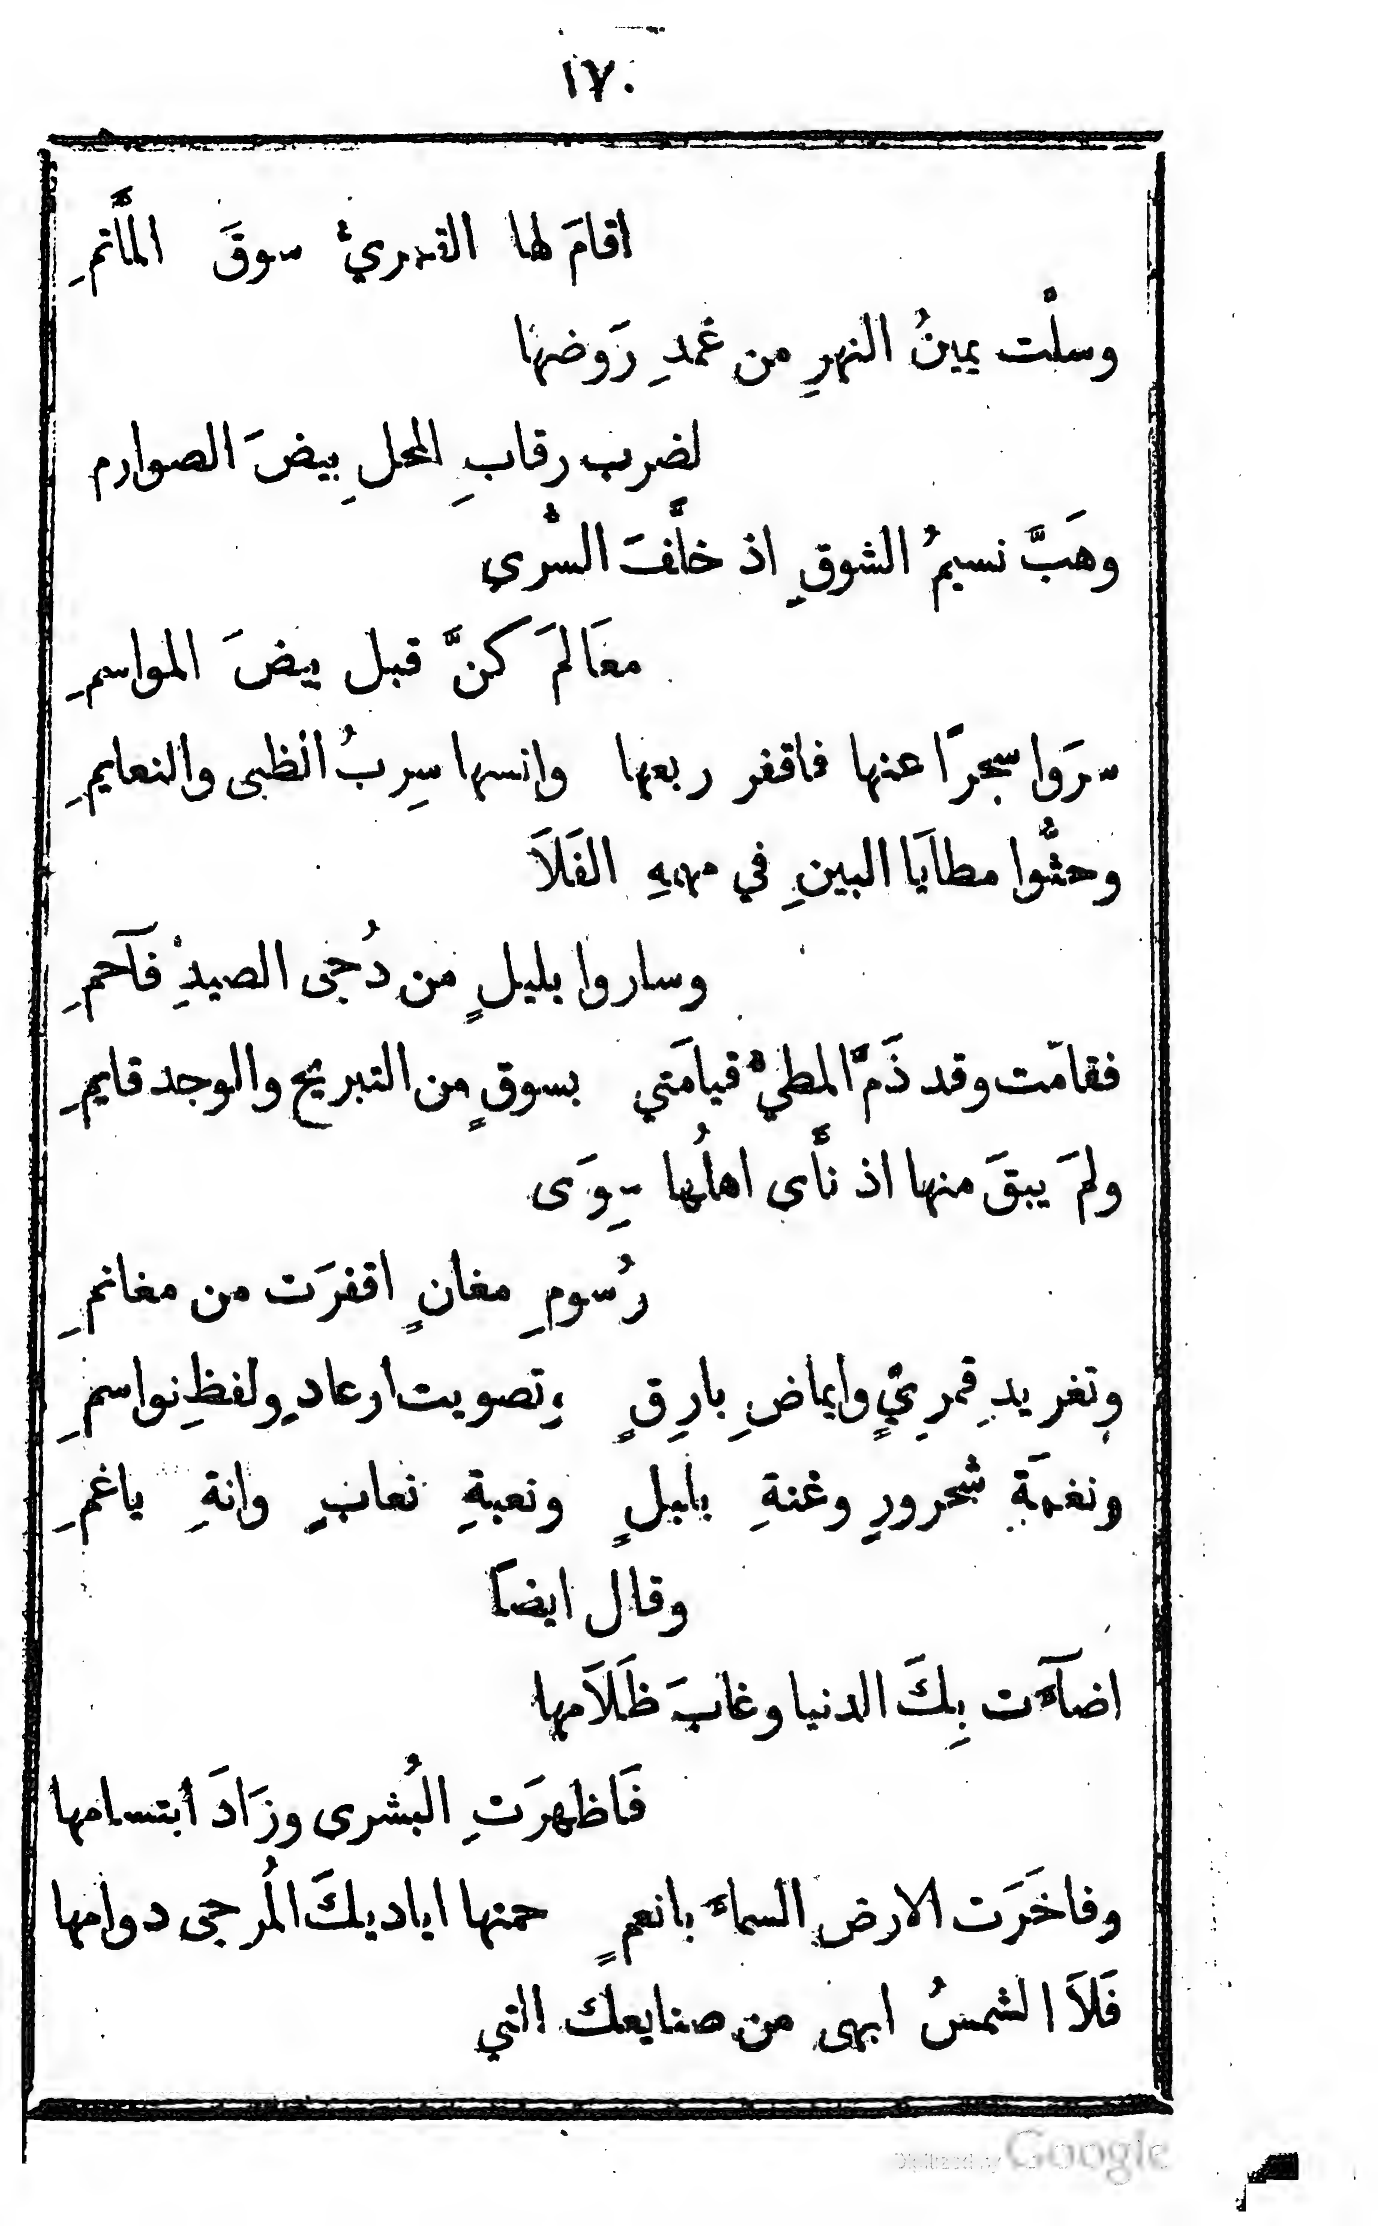 ١٧٠
اقامَ لها القمريُّ سوقَ المأَّتمِ
وسلْت يمينُ النهرِ من غمدِ رَوضها
لضرب رقابِ المحلِ بيضَ الصوارم
وهَبَّ نسيمُ الشوقِ اذ خلَّفَ السُّري
معَالمَ كنَّ قبل بيضَ المواسمِ
سرَوا سحرًا عنها فاقفر ربعها وانسها سِربُ الظبى والنعايمِ
وحثُّوا مطاَيَا البينِ في مهمهِ الفَلاَ
وساروا بليلٍ من دُجى الصيدِ فآحمِ
فقامَت وقد ذَمَّ المطيُّ قيامَتي بسوقٍ من التبريح والوجد قايمِ
ولمَ يبقَ منها اذ نأَّى اهلُها سِوَى
رُسومِ مغانٍ اقفرَت من مغانمِ
وتغريدِ قمرِيٍّ وايماضِ بارِقٍ وتصويت ارعادٍ ولفظِ نواسمِ
ونغمَةِ شحرورٍ وغنةِ بلبلٍ ونعبةِ نعابٍ وانةِ ياغمِ
وقال ايضاً
اضآءَت بِكَ الدنيا وغابَ ظَلاَمها
فَاظهرَتِ البُشرى وزَادَ ابتسامها
وفاخَرَت الارض السماءَ بانعمٍ حمتها اياديكَ المُرجى دوامها
فَلاَ الشمسُ ابهى من صنايعك التي
Digitized by Google